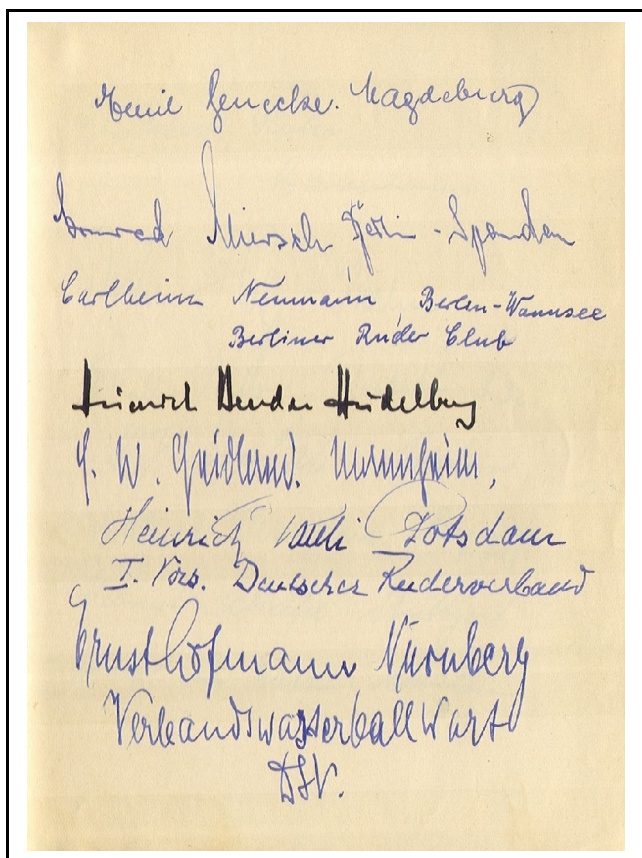 Emil Benecke. Magdeburg
Konrad Miersch Berlin-Spandau
Carlheinz Neumann, Berlin-Wannsee
Berliner Ruder Club
Heinrich Heidelberg
G. W. Mannheim,
Heinrich Pauli Potsdam
I. Vors. Deutscher Ruderverband
Ernst Hofmann Nürnberg
Verbandswasserballwart
DSV.